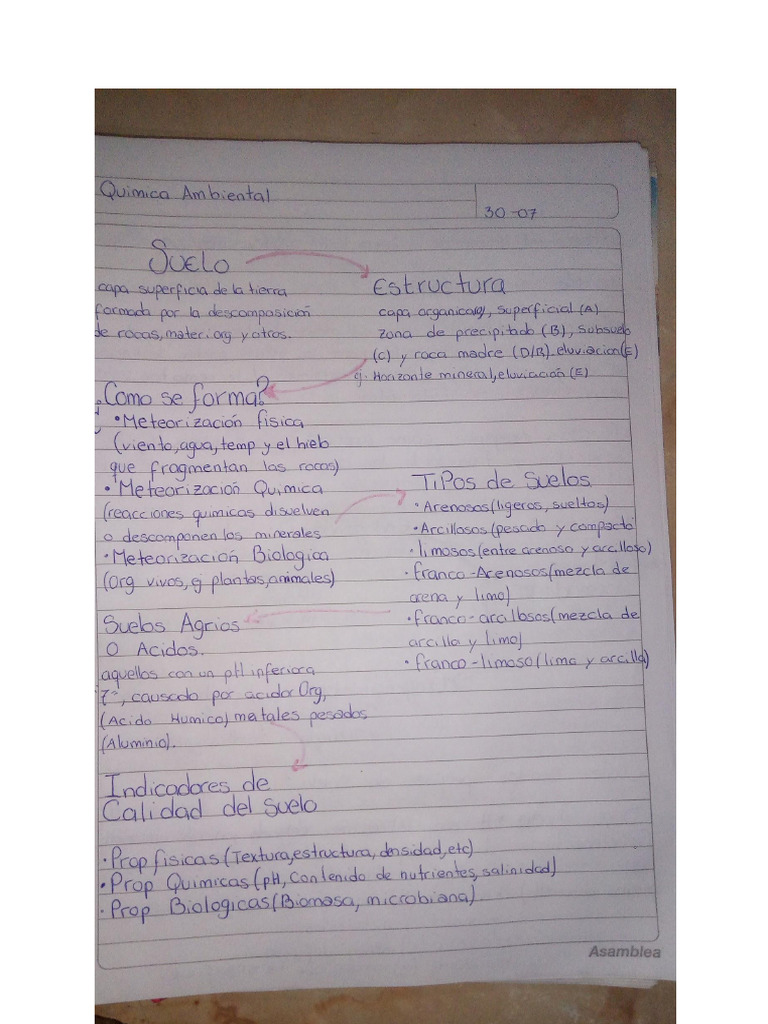 Quimica Ambiental
30-07
Suelo
capa superficia de la tierra
formada por la descomposición
de rocas, materi org y otros.
Estructura
capa organica(O), superficial (A)
zona de precipitado (B), subsuelo
(C) y roca madre (D/R). eluviacion(E)
Horizonte mineral, eluviación (E)
¿Como se forma?
• Meteorización fisica
(viento, agua, temp y el hielo
que fragmentan las rocas)
• Meteorización Quimica
(reacciones quimicas disuelven
o descomponen los minerales
• Meteorización Biologica
(Org vivos, ej plantas, animales)
Tipos de Suelos
• Arenosos (ligeros, sueltos)
• Arcillosos (pesado y compacto
• limosos (entre arenoso y arcilloso)
• franco-Arenosos (mezcla de
arena y limo)
• franco-arcillosos (mezcla de
arcilla y limo)
• franco-limoso (limo y arcilla)
Suelos Agrios
O Acidos.
aquellos con un pH inferior a
7, causado por acidos Org,
(Acido Humico) metales pesados
(Aluminio).
Indicadores de
Calidad del suelo
• Prop fisicas (Textura, estructura, densidad, etc)
• Prop Quimicas (pH, Contenido de nutrientes, salinidad)
• Prop Biologicas (Biomasa, microbiana)
Asamblea